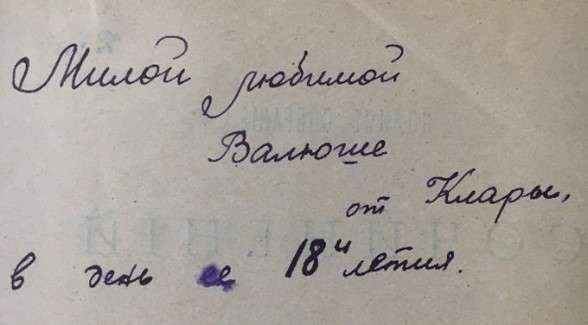 Милой любимой
Валюше
от Клары,
в день ее 18ч летия.